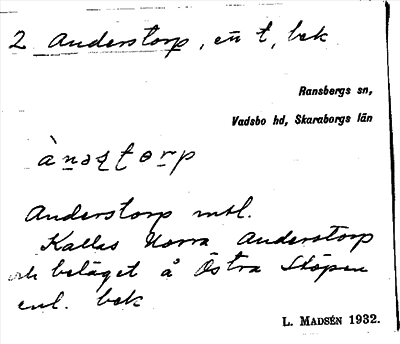 2 Anderstorp, en t, bek
Ransbergs sn,
Vadsbo hd, Skaraborgs län
Anderstorp mtl.
Kallas Norra Anderstorp
och beläget å Östra Stöpen
enl. bek
L. MADSÉN 1932.